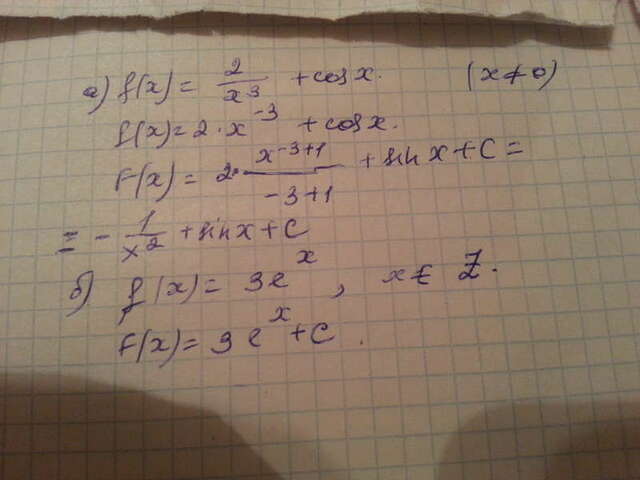 а) f(x) = 2/x³ + cos x. (x ≠ 0)
f(x) = 2 · x⁻³ + cos x.
F(x) = 2 · x⁻³⁺¹/(-3+1) + sin x + C =
= - 1/x² + sin x + C
б) f(x) = 3eˣ, x ∈ Z.
F(x) = 3eˣ + C.